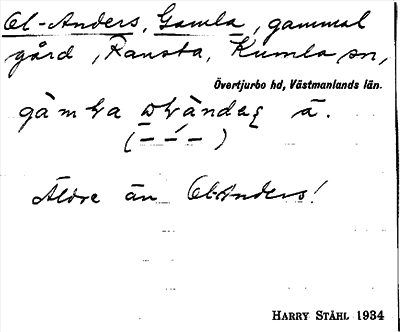 Ol-Anders, Gamla, gammal
gård, Ransta, Kumla sn,
Övertjurbo hd, Västmanlands län.
gàmɫa
á.
(– –́ –)
Äldre än Ol-Anders!
HARRY STÅHL 1934